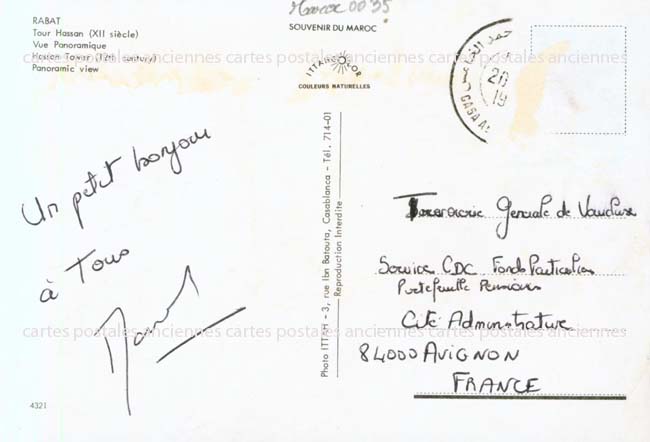 Maroc 0035
RABAT
Tour Hassan (XII siècle)
Vue Panoramique
Hassan Tower (12th century)
Panoramic view
SOUVENIR DU MAROC
ITTAH COLOR
COULEURS NATURELLES
20
19
CASA A
cartes postales anciennes cartes postales anciennes cartes postales anciennes
Un petit bonjour
à Tous
Photo ITTAH - 3, rue Ibn Batouta, Casablanca - Tél. 714-01
Reproduction Interdite
Trésorerie Générale de Vaucluse
Service CDC Fonds Particuliers
Portefeuille Pensions
Cité Administrative
84000 AVIGNON
FRANCE
cartes postales anciennes cartes postales anciennes cartes postales anciennes
4321